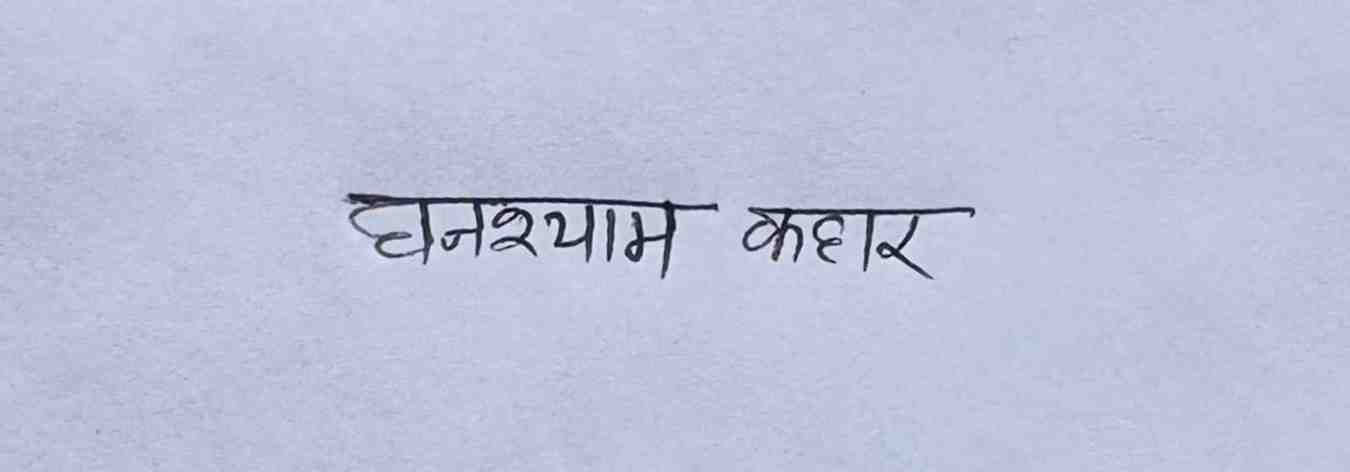 घनश्याम कहार